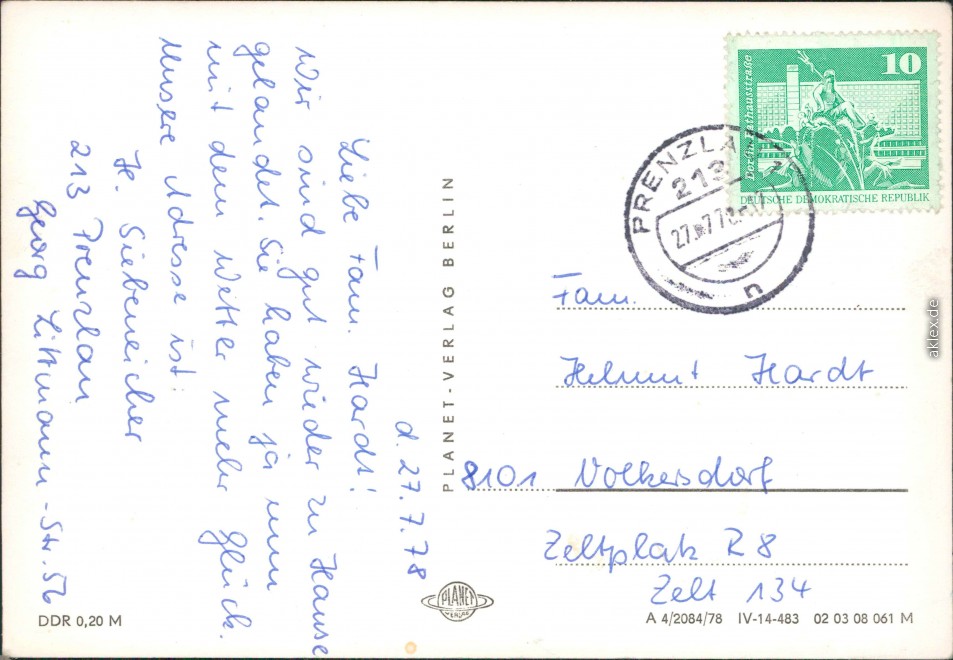 d. 27.7.78
Liebe Fam. Hardt!
Wir sind gut wieder zu Hause
gelandet. Sie haben ja nun
mit dem Wetter mehr Glück.
Unsere Adresse ist:
Siebeneicher
213 Prenzlau
Georg Littmann-Str. 56
PLANET-VERLAG BERLIN
10
Berlin, Rathausstraße
DEUTSCHE DEMOKRATISCHE REPUBLIK
PRENZLAU
213
27. 7.78
n
Fam.
Helmut Hardt
8101 Volkersdorf
Zeltplatz R8
Zelt 134
DDR 0,20 M
PLANET
VERLAG
A 4/2084/78 IV-14-483 02 03 08 061 M
aklex.de